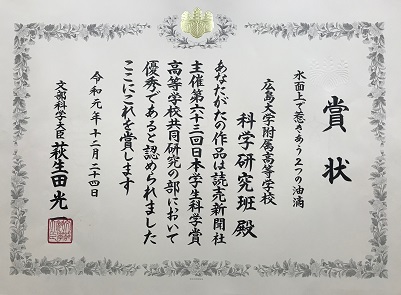 賞状
水面上で惹きあう2つの油滴
広島大学附属高等学校
科学研究班 殿
あなたがたの作品は読売新聞社
主催第六十三回日本学生科学賞
高等学校共同研究の部において
優秀であると認められました
ここにこれを賞します
令和元年十二月二十四日
文部科学大臣 萩生田光一